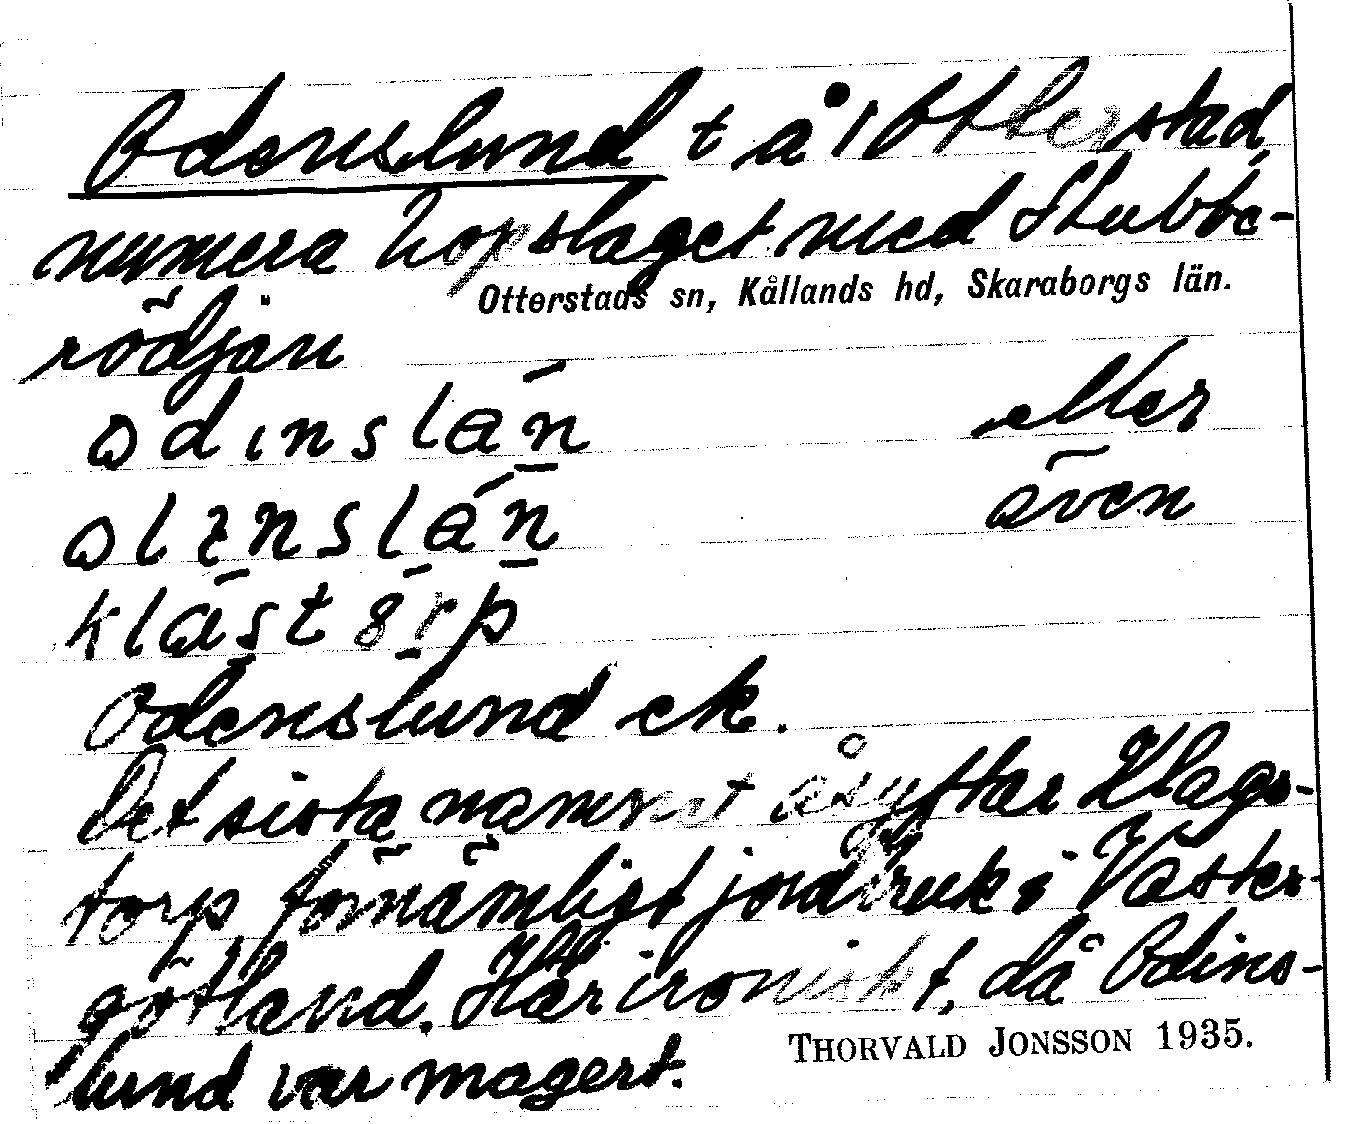 Odenslund t å i Otterstad,
numera hopslaget med Stubbe-
Otterstads sn, Kållands hd, Skaraborgs län.
rödjan
odinslán eller
även
klȧst örp
Odenslund ek.
Det sista namnet åsyftar Klags-
torp förnämligt jordbruk i Väster-
götland. Här ironiskt, då Odins-
lund var magert.
THORVALD JONSSON 1935.